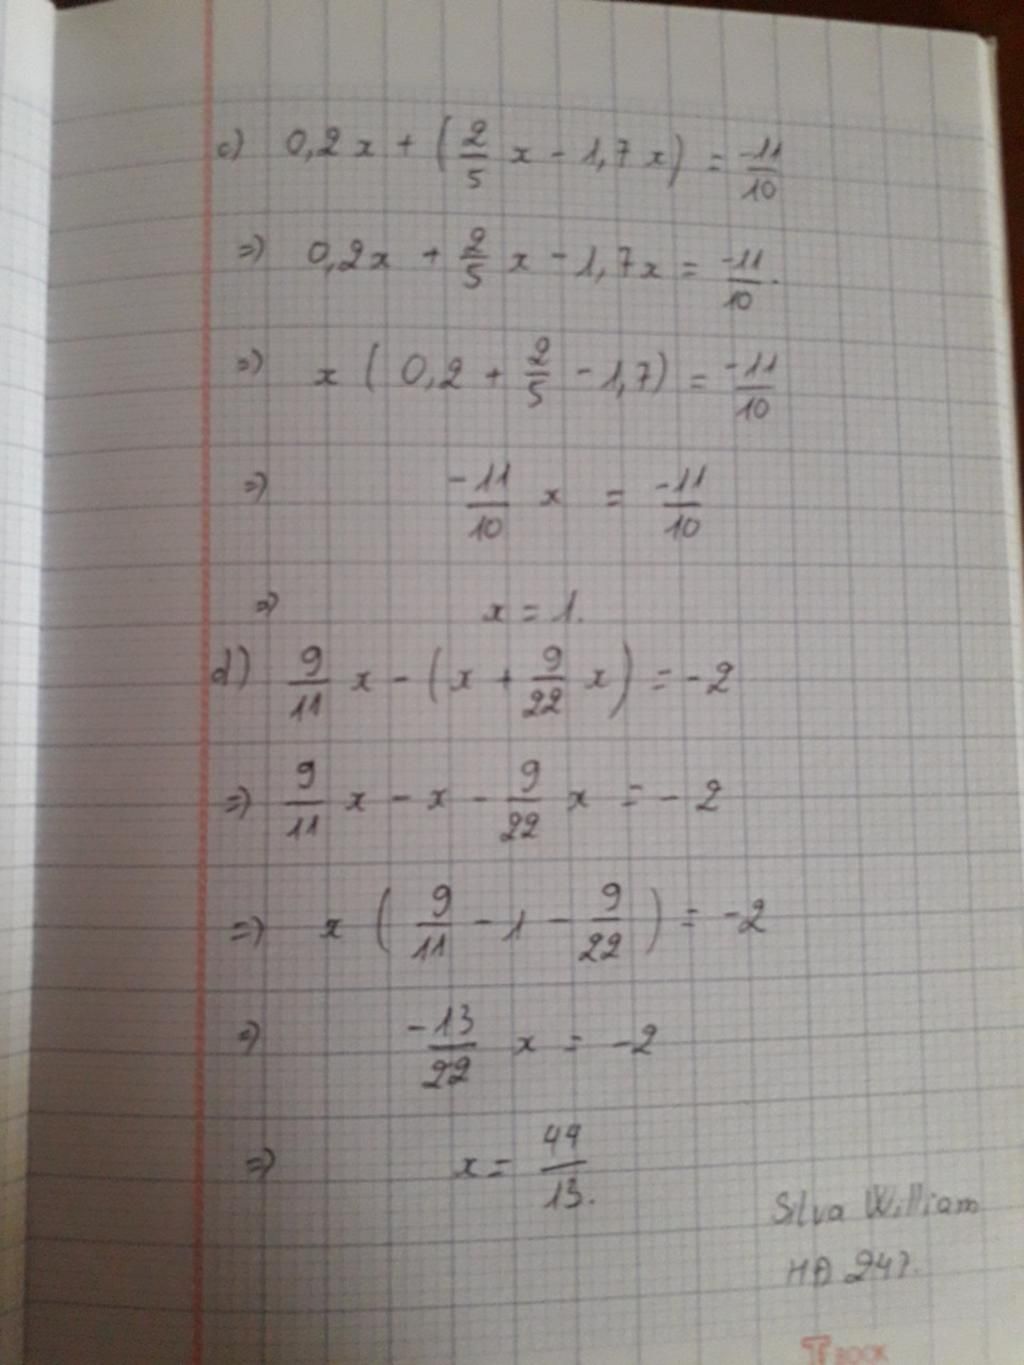 c) 0,2x + (2/5 x - 1,7x) = -11/10
=> 0,2x + 2/5 x - 1,7x = -11/10.
=> x (0,2 + 2/5 - 1,7) = -11/10
=> -11/10 x = -11/10
=> x = 1.
d) 9/11 x - (x + 9/22 x) = -2
=> 9/11 x - x - 9/22 x = -2
=> x (9/11 - 1 - 9/22) = -2
=> -13/22 x = -2
=> x = 44/13.
Silva William